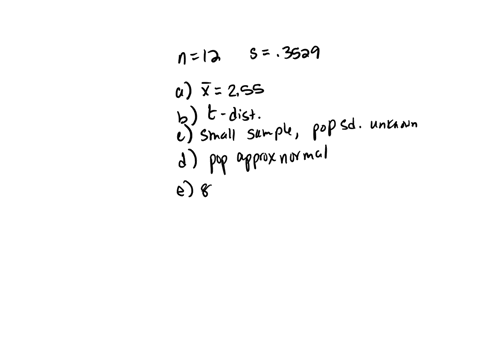 n=12 s=.3529
a) x̄=2.55
b) t-dist.
c) small sample, pop sd. unknown
d) pop approx normal
e) 8